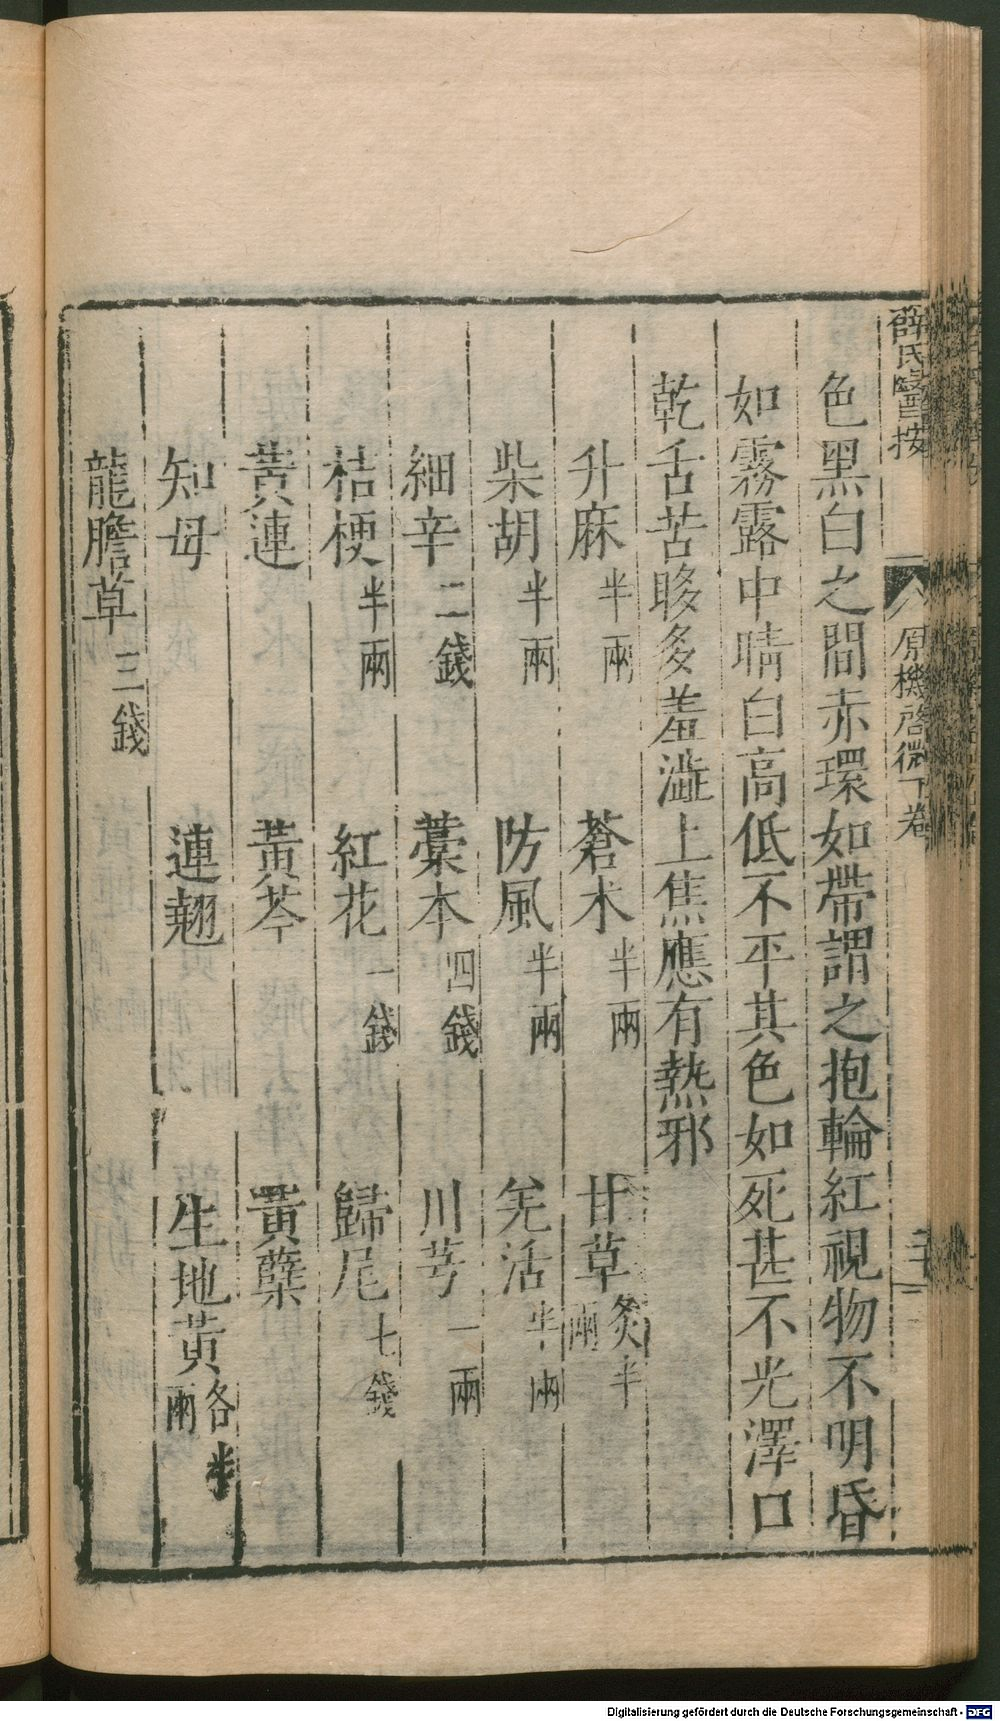 薛氏醫按
原機啓微下卷
色黑白之間赤環如帶謂之抱輪紅視物不明昏
如霧露中睛白高低不平其色如死甚不光澤口
乾舌苦眵多羞澁上焦應有熱邪
升麻半兩 蒼朮半兩 甘草炙半兩
柴胡半兩 防風半兩 羌活半兩
細辛二錢 藁本四錢 川芎一兩
桔梗半兩 紅花一錢 歸尾七錢
黃連 黃芩 黃蘗
知母 連翹 生地黃各半兩
龍膽草三錢
Digitalisierung gefördert durch die Deutsche Forschungsgemeinschaft - DFG